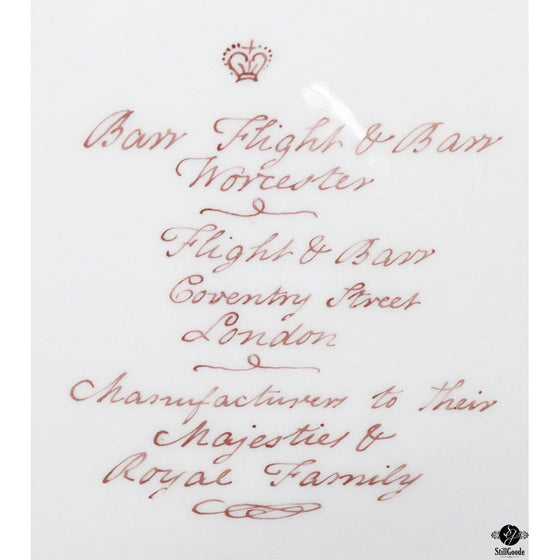 Barr Flight & Barr
Worcester
Flight & Barr
Coventry Street
London
Manufacturers to their
Majesties &
Royal Family
StillGoode